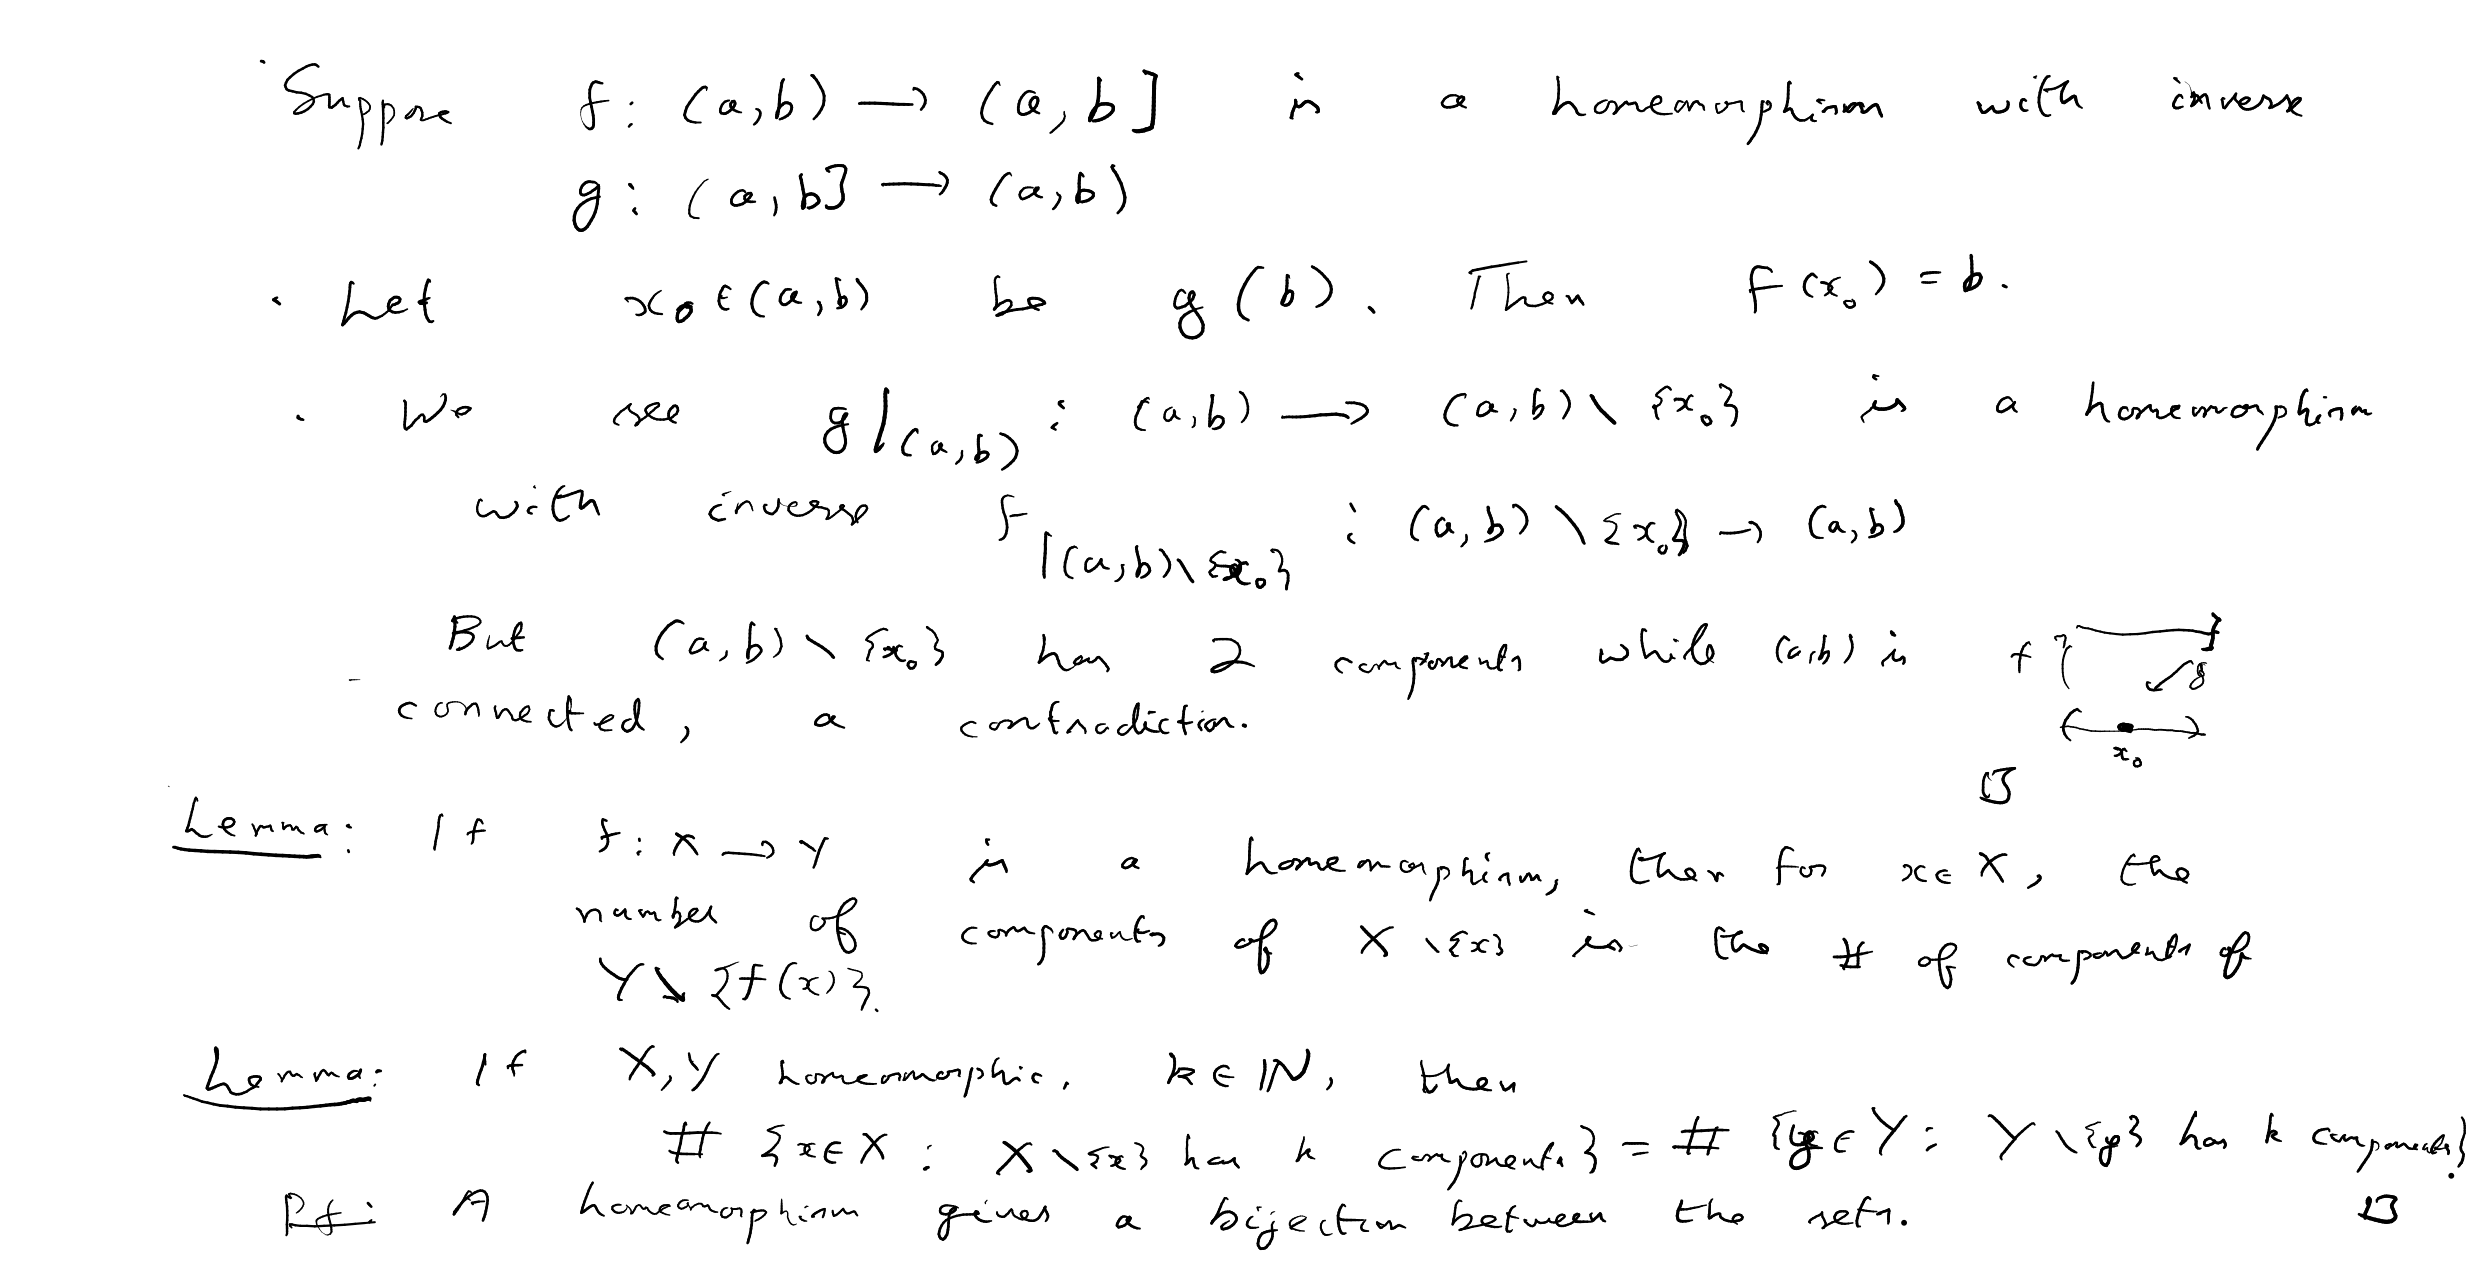 · Suppose f: (a,b) → (a,b] is a homeomorphism with inverse
g: (a,b] → (a,b)
· Let x₀ ∈ (a,b) be g(b). Then f(x₀) = b.
· We see g|₍a,b₎ : (a,b) → (a,b)\{x₀} is a homeomorphism
with inverse f|(a,b)\{x₀} : (a,b)\{x₀} → (a,b)
But (a,b)\{x₀} has 2 components while (a,b) is
- connected, a contradiction.
f g
x₀
□
Lemma: If f: X → Y is a homeomorphism, then for x ∈ X, the
number of components of X\{x} is the # of components of
Y\{f(x)}.
Lemma: If X, Y homeomorphic, k ∈ ℕ, then
# {x ∈ X : X\{x} has k components} = # {y ∈ Y : Y\{y} has k components}.
Pf: A homeomorphism gives a bijection between the sets. □